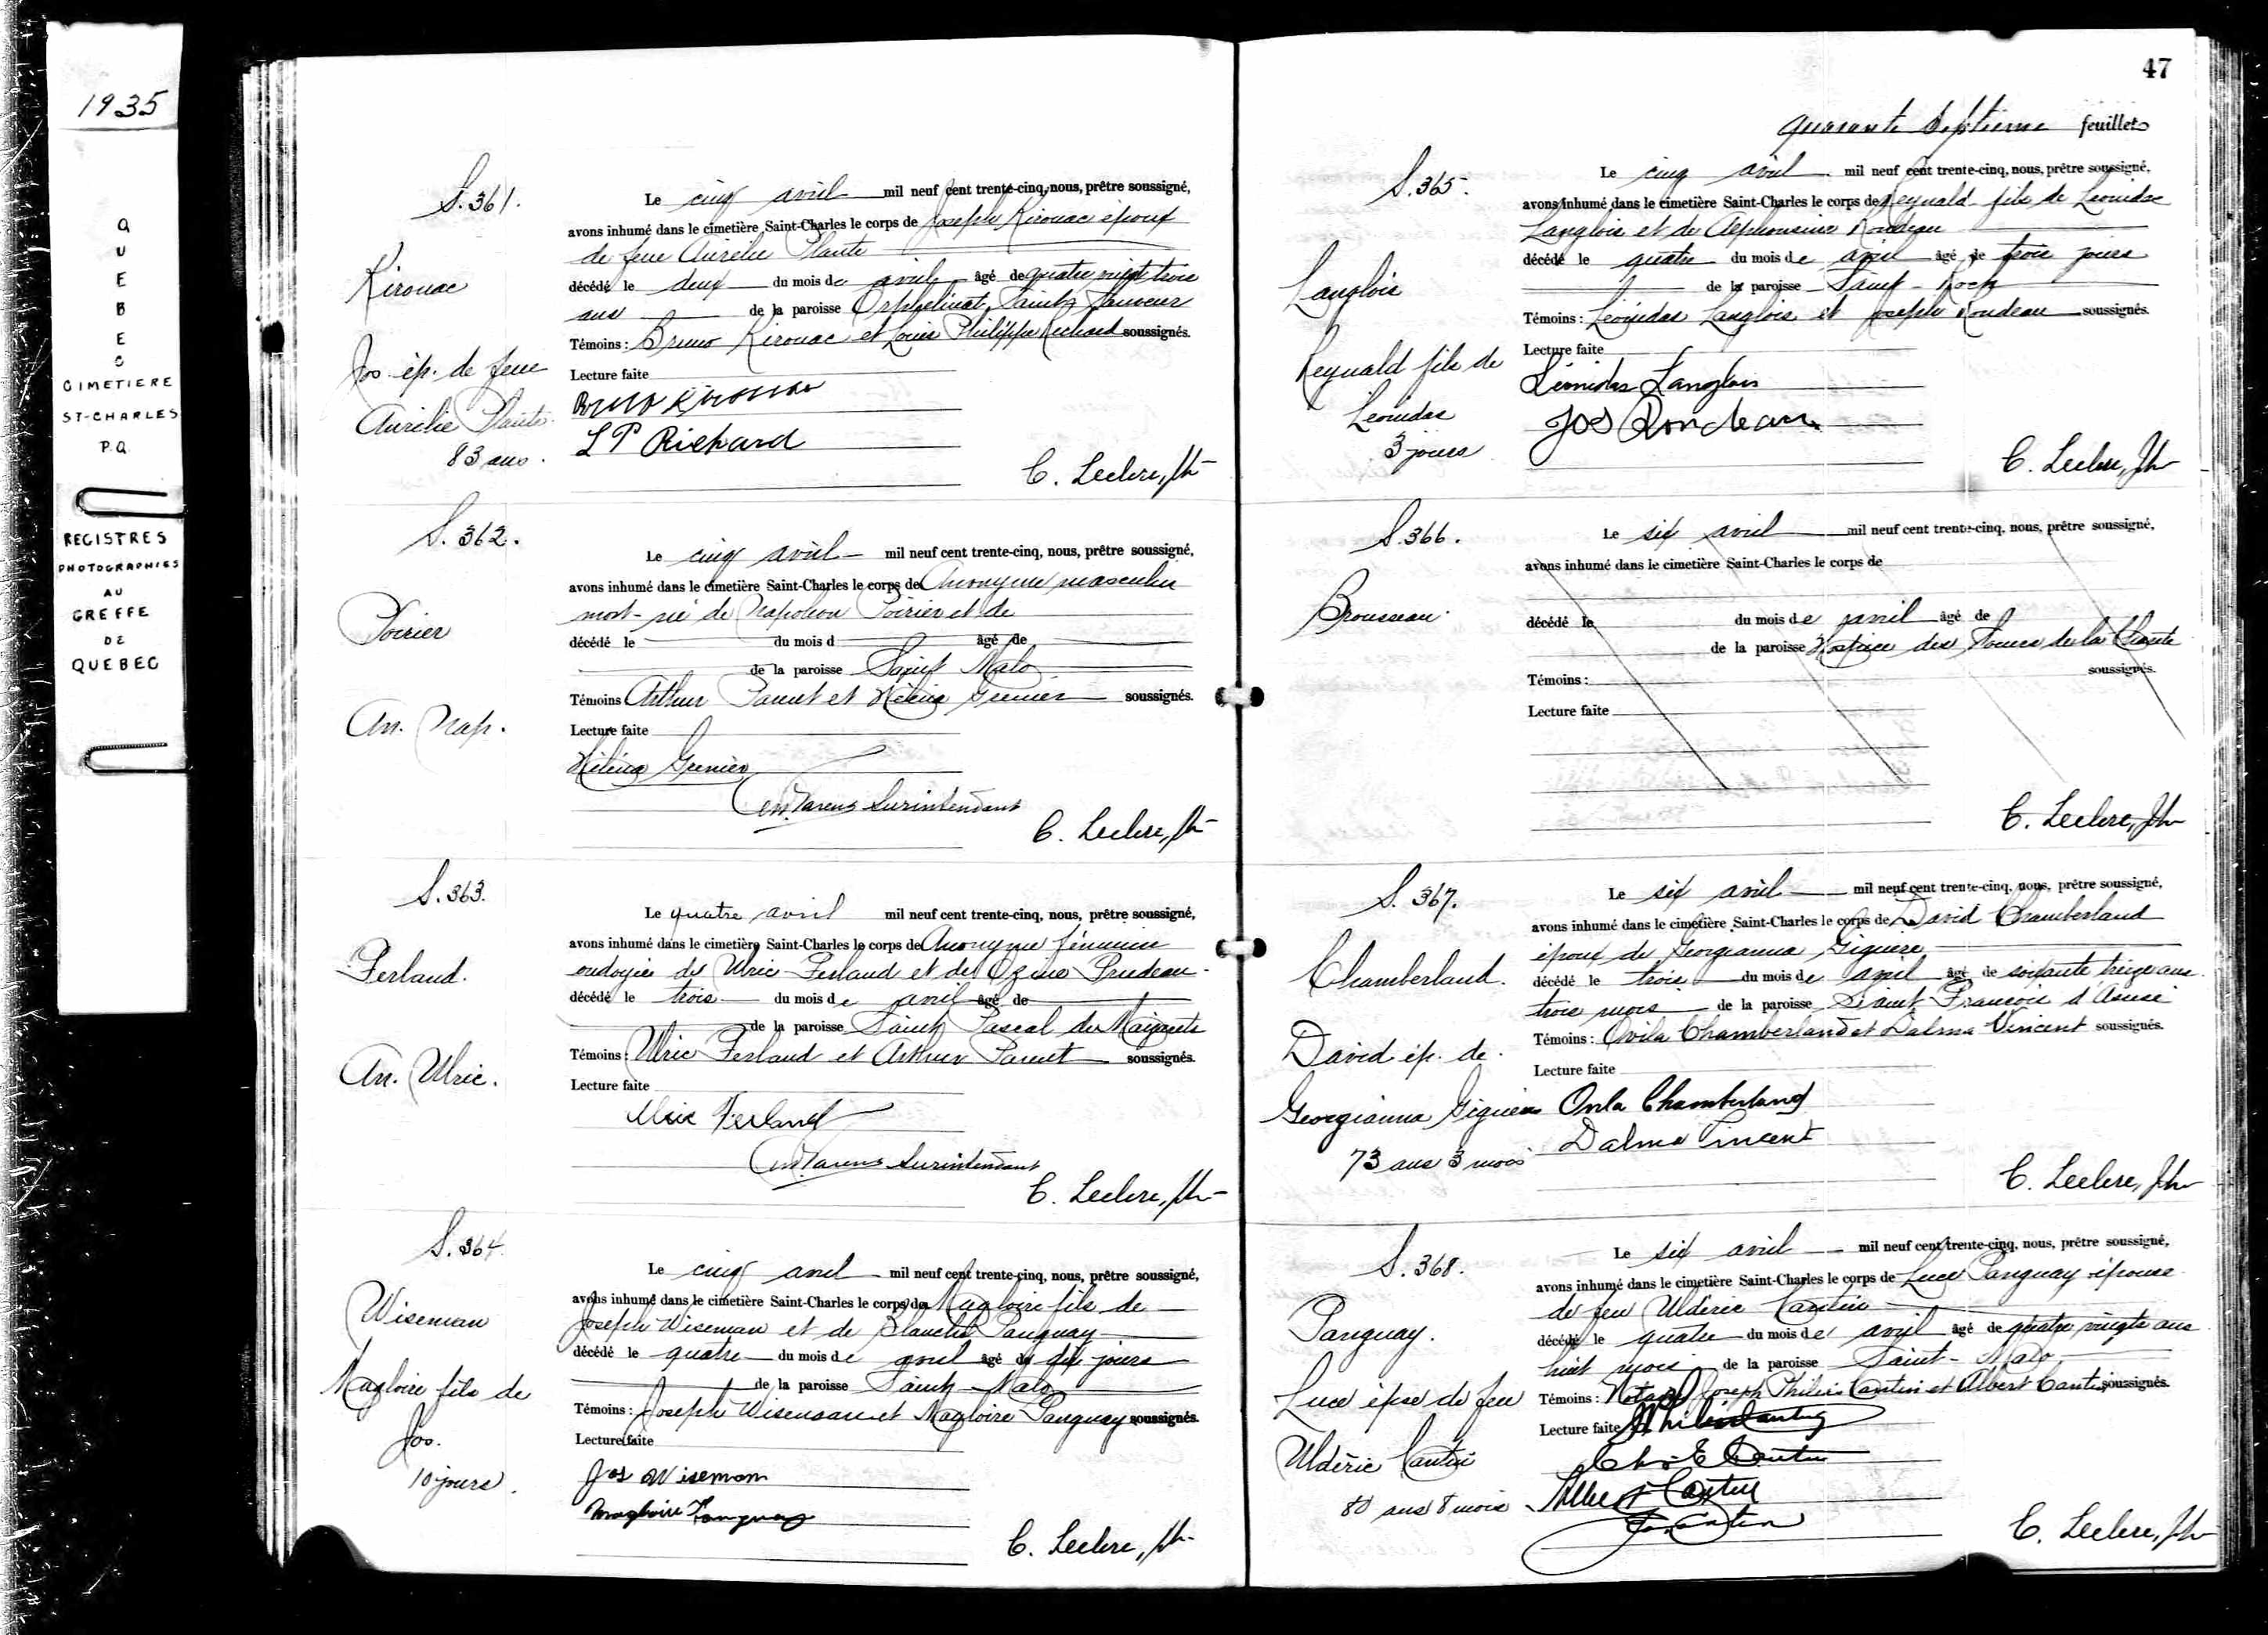 1935
QUEBEC
CIMETIERE
ST-CHARLES
P.Q.
REGISTRES
PHOTOGRAPHIES
AU
GREFFE
DE
QUEBEC
S. 361.
Kirouac
Jos. ép. de feue
Aurélie Plante
83 ans.
Le cinq avril mil neuf cent trente-cinq, nous, prêtre soussigné,
avons inhumé dans le cimetière Saint-Charles le corps de Joseph Kirouac époux
de feue Aurélie Plante
décédé le deux du mois de avril âgé de quatre vingt trois
ans de la paroisse Orphelinat Saint Sauveur
Témoins : Bruno Kirouac et Louis Philippe Richard soussignés.
Lecture faite
Bruno Kirouac
L P Richard
C. Leclerc, ptr
S. 362.
Poirier
An. Nap.
Le cinq avril mil neuf cent trente-cinq, nous, prêtre soussigné,
avons inhumé dans le cimetière Saint-Charles le corps de Anonyme masculin
mort-né de Napoléon Poirier et de
décédé le du mois d âgé de
de la paroisse Saint Malo
Témoins Arthur et Héléna Grenier soussignés.
Lecture faite
Héléna Grenier
Surintendant
C. Leclerc, ptr
S. 363.
Ferland.
An. Ulric.
Le quatre avril mil neuf cent trente-cinq, nous, prêtre soussigné,
avons inhumé dans le cimetière Saint-Charles le corps de Anonyme féminin
ondoyée de Ulric Ferland et de
décédé le trois du mois de avril âgé de
de la paroisse Saint Pascal de Maizerets
Témoins : Ulric Ferland et Arthur soussignés.
Lecture faite
Ulric Ferland
Surintendant
C. Leclerc, ptr
S. 364.
Wiseman
Magloire fils de
Jos.
10 jours.
Le cinq avril mil neuf cent trente-cinq, nous, prêtre soussigné,
avons inhumé dans le cimetière Saint-Charles le corps de Magloire fils de
Joseph Wiseman et de Blanche Tanguay
décédé le quatre du mois de avril âgé de dix jours
de la paroisse Saint-Malo
Témoins : Joseph Wiseman et Magloire Tanguay soussignés.
Lecture faite
Jos Wiseman
Magloire Tanguay
C. Leclerc, ptr
47
quarante septième feuillet
S. 365.
Langlois
Reynald fils de
Léonidas
3 jours
Le cinq avril mil neuf cent trente-cinq, nous, prêtre soussigné,
avons inhumé dans le cimetière Saint-Charles le corps de Reynald fils de Léonidas
Langlois et de Alphonsine Rondeau
décédé le quatre du mois de avril âgé de trois jours
de la paroisse Saint-Roch
Témoins : Léonidas Langlois et Joseph Rondeau soussignés.
Lecture faite
Léonidas Langlois
Jos Rondeau
C. Leclerc, ptr
S. 366.
Brousseau.
Le six avril mil neuf cent trente-cinq, nous, prêtre soussigné,
avons inhumé dans le cimetière Saint-Charles le corps de
décédé le du mois de avril âgé de
de la paroisse Hospice des Soeurs de la Charité
Témoins : soussignés.
Lecture faite
C. Leclerc, ptr
S. 367.
Chamberland.
David ép. de
Georgianna Giguère
73 ans 3 mois
Le six avril mil neuf cent trente-cinq, nous, prêtre soussigné,
avons inhumé dans le cimetière Saint-Charles le corps de David Chamberland
époux de Georgianna Giguère
décédé le trois du mois de avril âgé de soixante treize ans
trois mois de la paroisse Saint François d'Assise
Témoins : Ovila Chamberland et Dalma Vincent soussignés.
Lecture faite
Ovila Chamberland
Dalma Vincent
C. Leclerc, ptr
S. 368.
Tanguay.
Luce épse de feu
Uldéric Cantin
80 ans 8 mois
Le six avril mil neuf cent trente-cinq, nous, prêtre soussigné,
avons inhumé dans le cimetière Saint-Charles le corps de Luce Tanguay épouse
de feu Uldéric Cantin
décédé le quatre du mois de avril âgé de quatre vingts ans
huit mois de la paroisse Saint-Malo
Témoins : Joseph Philias Cantin et Albert Cantin soussignés.
Lecture faite J Philias Cantin
Chs E Cantin
Albert Cantin
Jos Cantin
C. Leclerc, ptr